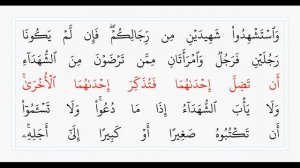 وَٱسْتَشْهِدُوا۟ شَهِيدَيْنِ مِن رِّجَالِكُمْ ۖ فَإِن لَّمْ يَكُونَا
رَجُلَيْنِ فَرَجُلٌ وَٱمْرَأَتَانِ مِمَّن تَرْضَوْنَ مِنَ ٱلشُّهَدَآءِ
أَن تَضِلَّ إِحْدَىٰهُمَا فَتُذَكِّرَ إِحْدَىٰهُمَا ٱلْأُخْرَىٰ ۚ
وَلَا يَأْبَ ٱلشُّهَدَآءُ إِذَا مَا دُعُوا۟ ۚ وَلَا تَسْـَٔمُوٓا۟
أَن تَكْتُبُوهُ صَغِيرًا أَوْ كَبِيرًا إِلَىٰٓ أَجَلِهِۦ ۚ